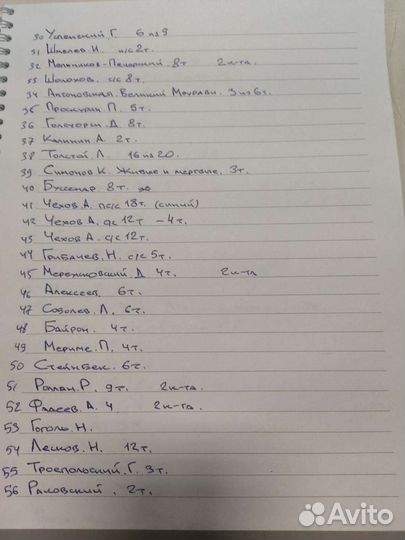 30 Успенский Г. 6 из 9
31 Шмелев И. п/с 2т.
32 Мельников-Печерский 8т 2 к-та.
33 Шолохов. с/с 8т.
34 Антоновская. Великий Моурави. 3 из 6т.
35 Проскурин П. 5т.
36 Голсуорси Д. 8т.
37 Калинин А. 2т.
38 Толстой Л. 16 из 20.
39 Симонов К. Живые и мертвые. 3т.
40 Буссенар 8т.
41 Чехов А. п/с 18т. (синий)
42 Чехов А. с/с 12т – 4т.
43 Чехов А. с/с 12т.
44 Грибачев. Н. с/с 5т.
45 Мережковский. Д 4т. 2 к-та
46 Алексеев. 6т.
47 Соболев. Л. 6т.
48 Байрон. 4т.
49 Мериме. П. 4т.
50 Стейнбек. 6т.
51 Роллан. Р. 9т. 2 к-та.
52 Фадеев. А. 4 2 к-та.
53 Гоголь. Н.
54 Лесков. Н. 12т.
55 Троепольский. Г. 3т.
56 Раковский. 2т.
Avito